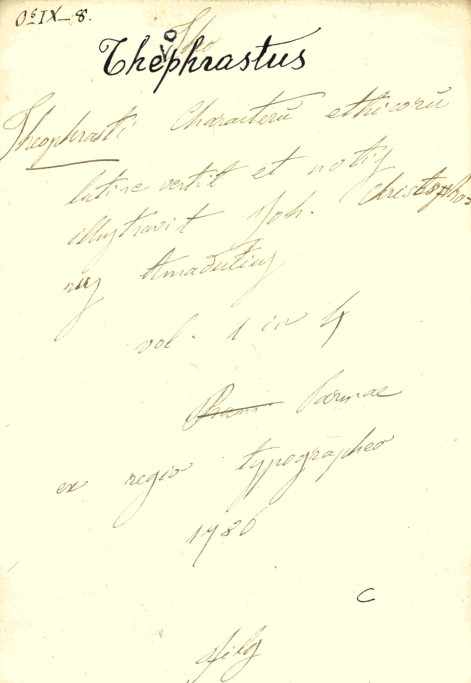 Oc IX–8.
Theophrastus
Theophrasti Characterū ethicorū
latine vertit et notis
illustravit Joh. Christopho=
rus Amadutius
vol. 1 in 4
Parmae
ex regio typographeo
1786
C